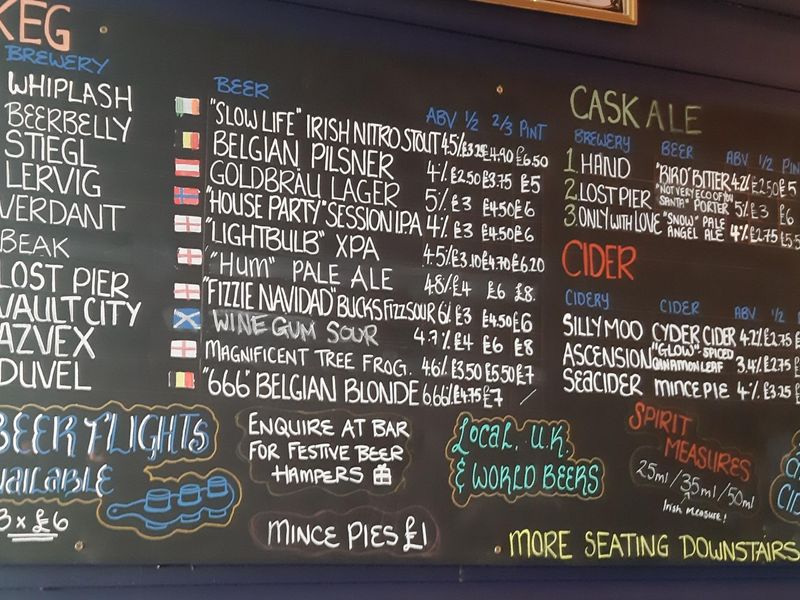 KEG
BREWERY BEER ABV 1/2 2/3 PINT
WHIPLASH "SLOW LIFE" IRISH NITRO STOUT 4.5% £3.25 £4.90 £6.50
BEERBELLY BELGIAN PILSNER 4% £2.50 £3.75 £5
STIEGL GOLDBRÄU LAGER 5% £3 £4.50 £6
LERVIG "HOUSE PARTY" SESSION IPA 4% £3 £4.50 £6
VERDANT "LIGHTBULB" XPA 4.5% £3.10 £4.70 £6.20
BEAK "HUM" PALE ALE 4.8% £4 £6 £8
LOST PIER "FIZZIE NAVIDAD" BUCKS FIZZ SOUR 6% £3 £4.50 £6
VAULT CITY WINE GUM SOUR 4.7% £4 £6 £8
AZVEX MAGNIFICENT TREE FROG. 4.6% £3.50 £5.50 £7
DUVEL "666" BELGIAN BLONDE 6.66% £4.75 £7 /
CASK ALE
BREWERY BEER ABV 1/2 PIN
1. HAND "BIRD" BITTER 4.2% £2.50 £5
2. LOST PIER "NOT VERY ECO OF YOU SANTA" PORTER 5% £3 £6
3. ONLY WITH LOVE "SNOW" PALE ANGEL ALE 4% £2.75 £5.5
CIDER
CIDERY CIDER ABV 1/2
SILLY MOO CYDER CIDER 4.2% £2.75
ASCENSION "GLOW" SPICED CINNAMON LEAF 3.4% £2.75
SEACIDER MINCE PIE 4% £3.25
BEER FLIGHTS
AVAILABLE
3 x £6
ENQUIRE AT BAR
FOR FESTIVE BEER
HAMPERS
MINCE PIES £1
LOCAL, U.K.
& WORLD BEERS
SPIRIT
MEASURES
25ml/35ml/50ml
Irish Measure!
MORE SEATING DOWNSTAIRS